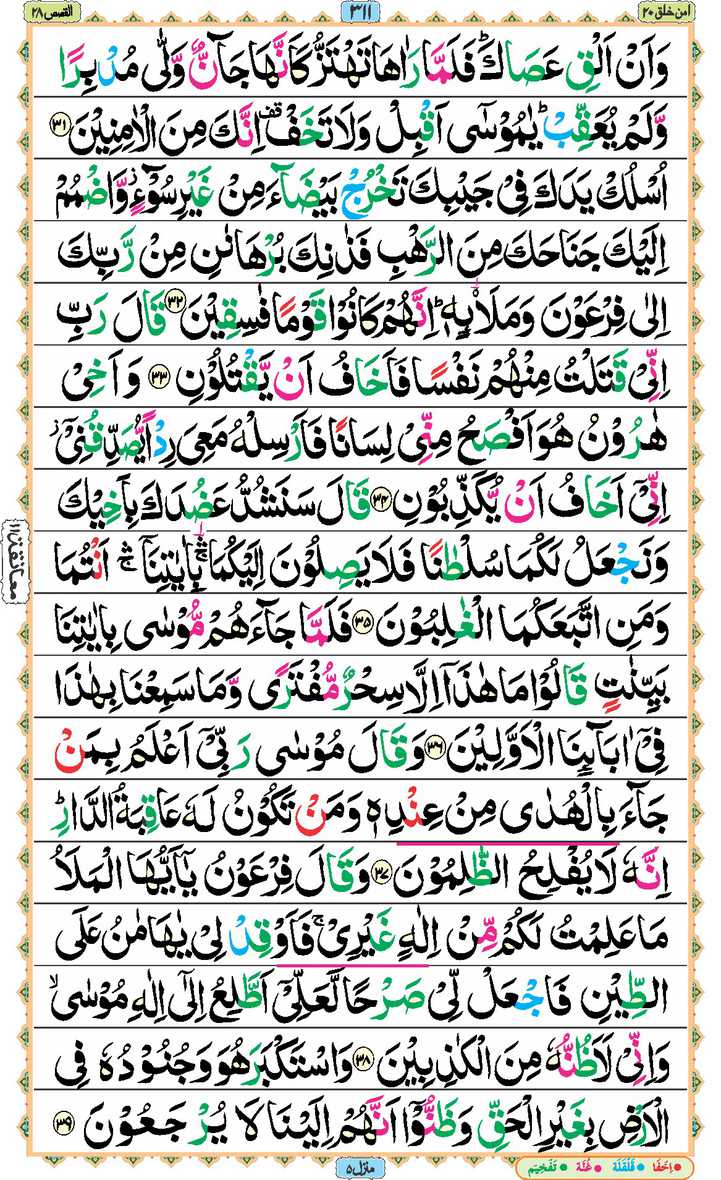 امن خلق ٢٠
٣١١
القصص ٢٨
وَاَنْ اَلْقِ عَصَاكَ ؕ فَلَمَّا رَاٰهَا تَهْتَزُّ كَاَنَّهَا جَآنٌّ وَّلّٰى مُدْبِرًا
وَّلَمْ يُعَقِّبْ ؕ يٰمُوْسٰٓى اَقْبِلْ وَلَا تَخَفْ ۫ اِنَّكَ مِنَ الْاٰمِنِيْنَ ٣١
اُسْلُكْ يَدَكَ فِيْ جَيْبِكَ تَخْرُجْ بَيْضَآءَ مِنْ غَيْرِ سُوْٓءٍ ؗ وَّاضْمُمْ
اِلَيْكَ جَنَاحَكَ مِنَ الرَّهْبِ فَذٰنِكَ بُرْهَانٰنِ مِنْ رَّبِّكَ
اِلٰى فِرْعَوْنَ وَمَلَا۟ئِهٖ ؕ اِنَّهُمْ كَانُوْا قَوْمًا فٰسِقِيْنَ ٣٢ قَالَ رَبِّ
اِنِّيْ قَتَلْتُ مِنْهُمْ نَفْسًا فَاَخَافُ اَنْ يَّقْتُلُوْنِ ٣٣ وَاَخِيْ
هٰرُوْنُ هُوَ اَفْصَحُ مِنِّيْ لِسَانًا فَاَرْسِلْهُ مَعِيَ رِدْاً يُّصَدِّقُنِيْٓ ؗ
اِنِّيْٓ اَخَافُ اَنْ يُّكَذِّبُوْنِ ٣٤ قَالَ سَنَشُدُّ عَضُدَكَ بِاَخِيْكَ
وَنَجْعَلُ لَكُمَا سُلْطٰنًا فَلَا يَصِلُوْنَ اِلَيْكُمَا ۛۚ بِاٰيٰتِنَآ ۛۚ اَنْتُمَا
وَمَنِ اتَّبَعَكُمَا الْغٰلِبُوْنَ ٣٥ فَلَمَّا جَآءَهُمْ مُّوْسٰى بِاٰيٰتِنَا
بَيِّنٰتٍ قَالُوْا مَا هٰذَآ اِلَّا سِحْرٌ مُّفْتَرًى وَّمَا سَمِعْنَا بِهٰذَا
فِيْٓ اٰبَآئِنَا الْاَوَّلِيْنَ ٣٦ وَقَالَ مُوْسٰى رَبِّيْٓ اَعْلَمُ بِمَنْ
جَآءَ بِالْهُدٰى مِنْ عِنْدِهٖ وَمَنْ تَكُوْنُ لَهٗ عَاقِبَةُ الدَّارِ ؕ
اِنَّهٗ لَا يُفْلِحُ الظّٰلِمُوْنَ ٣٧ وَقَالَ فِرْعَوْنُ يٰٓاَيُّهَا الْمَلَاُ
مَا عَلِمْتُ لَكُمْ مِّنْ اِلٰهٍ غَيْرِيْ ۚ فَاَوْقِدْ لِيْ يٰهَامٰنُ عَلَى
الطِّيْنِ فَاجْعَلْ لِّيْ صَرْحًا لَّعَلِّيْٓ اَطَّلِعُ اِلٰٓى اِلٰهِ مُوْسٰى ۙ
وَاِنِّيْ لَاَظُنُّهٗ مِنَ الْكٰذِبِيْنَ ٣٨ وَاسْتَكْبَرَ هُوَ وَجُنُوْدُهٗ فِي
الْاَرْضِ بِغَيْرِ الْحَقِّ وَظَنُّوْٓا اَنَّهُمْ اِلَيْنَا لَا يُرْجَعُوْنَ ٣٩
منزل ٥
اِخفَا • قَلْقَلَة • غُنَّة • تَفْخِيْم •